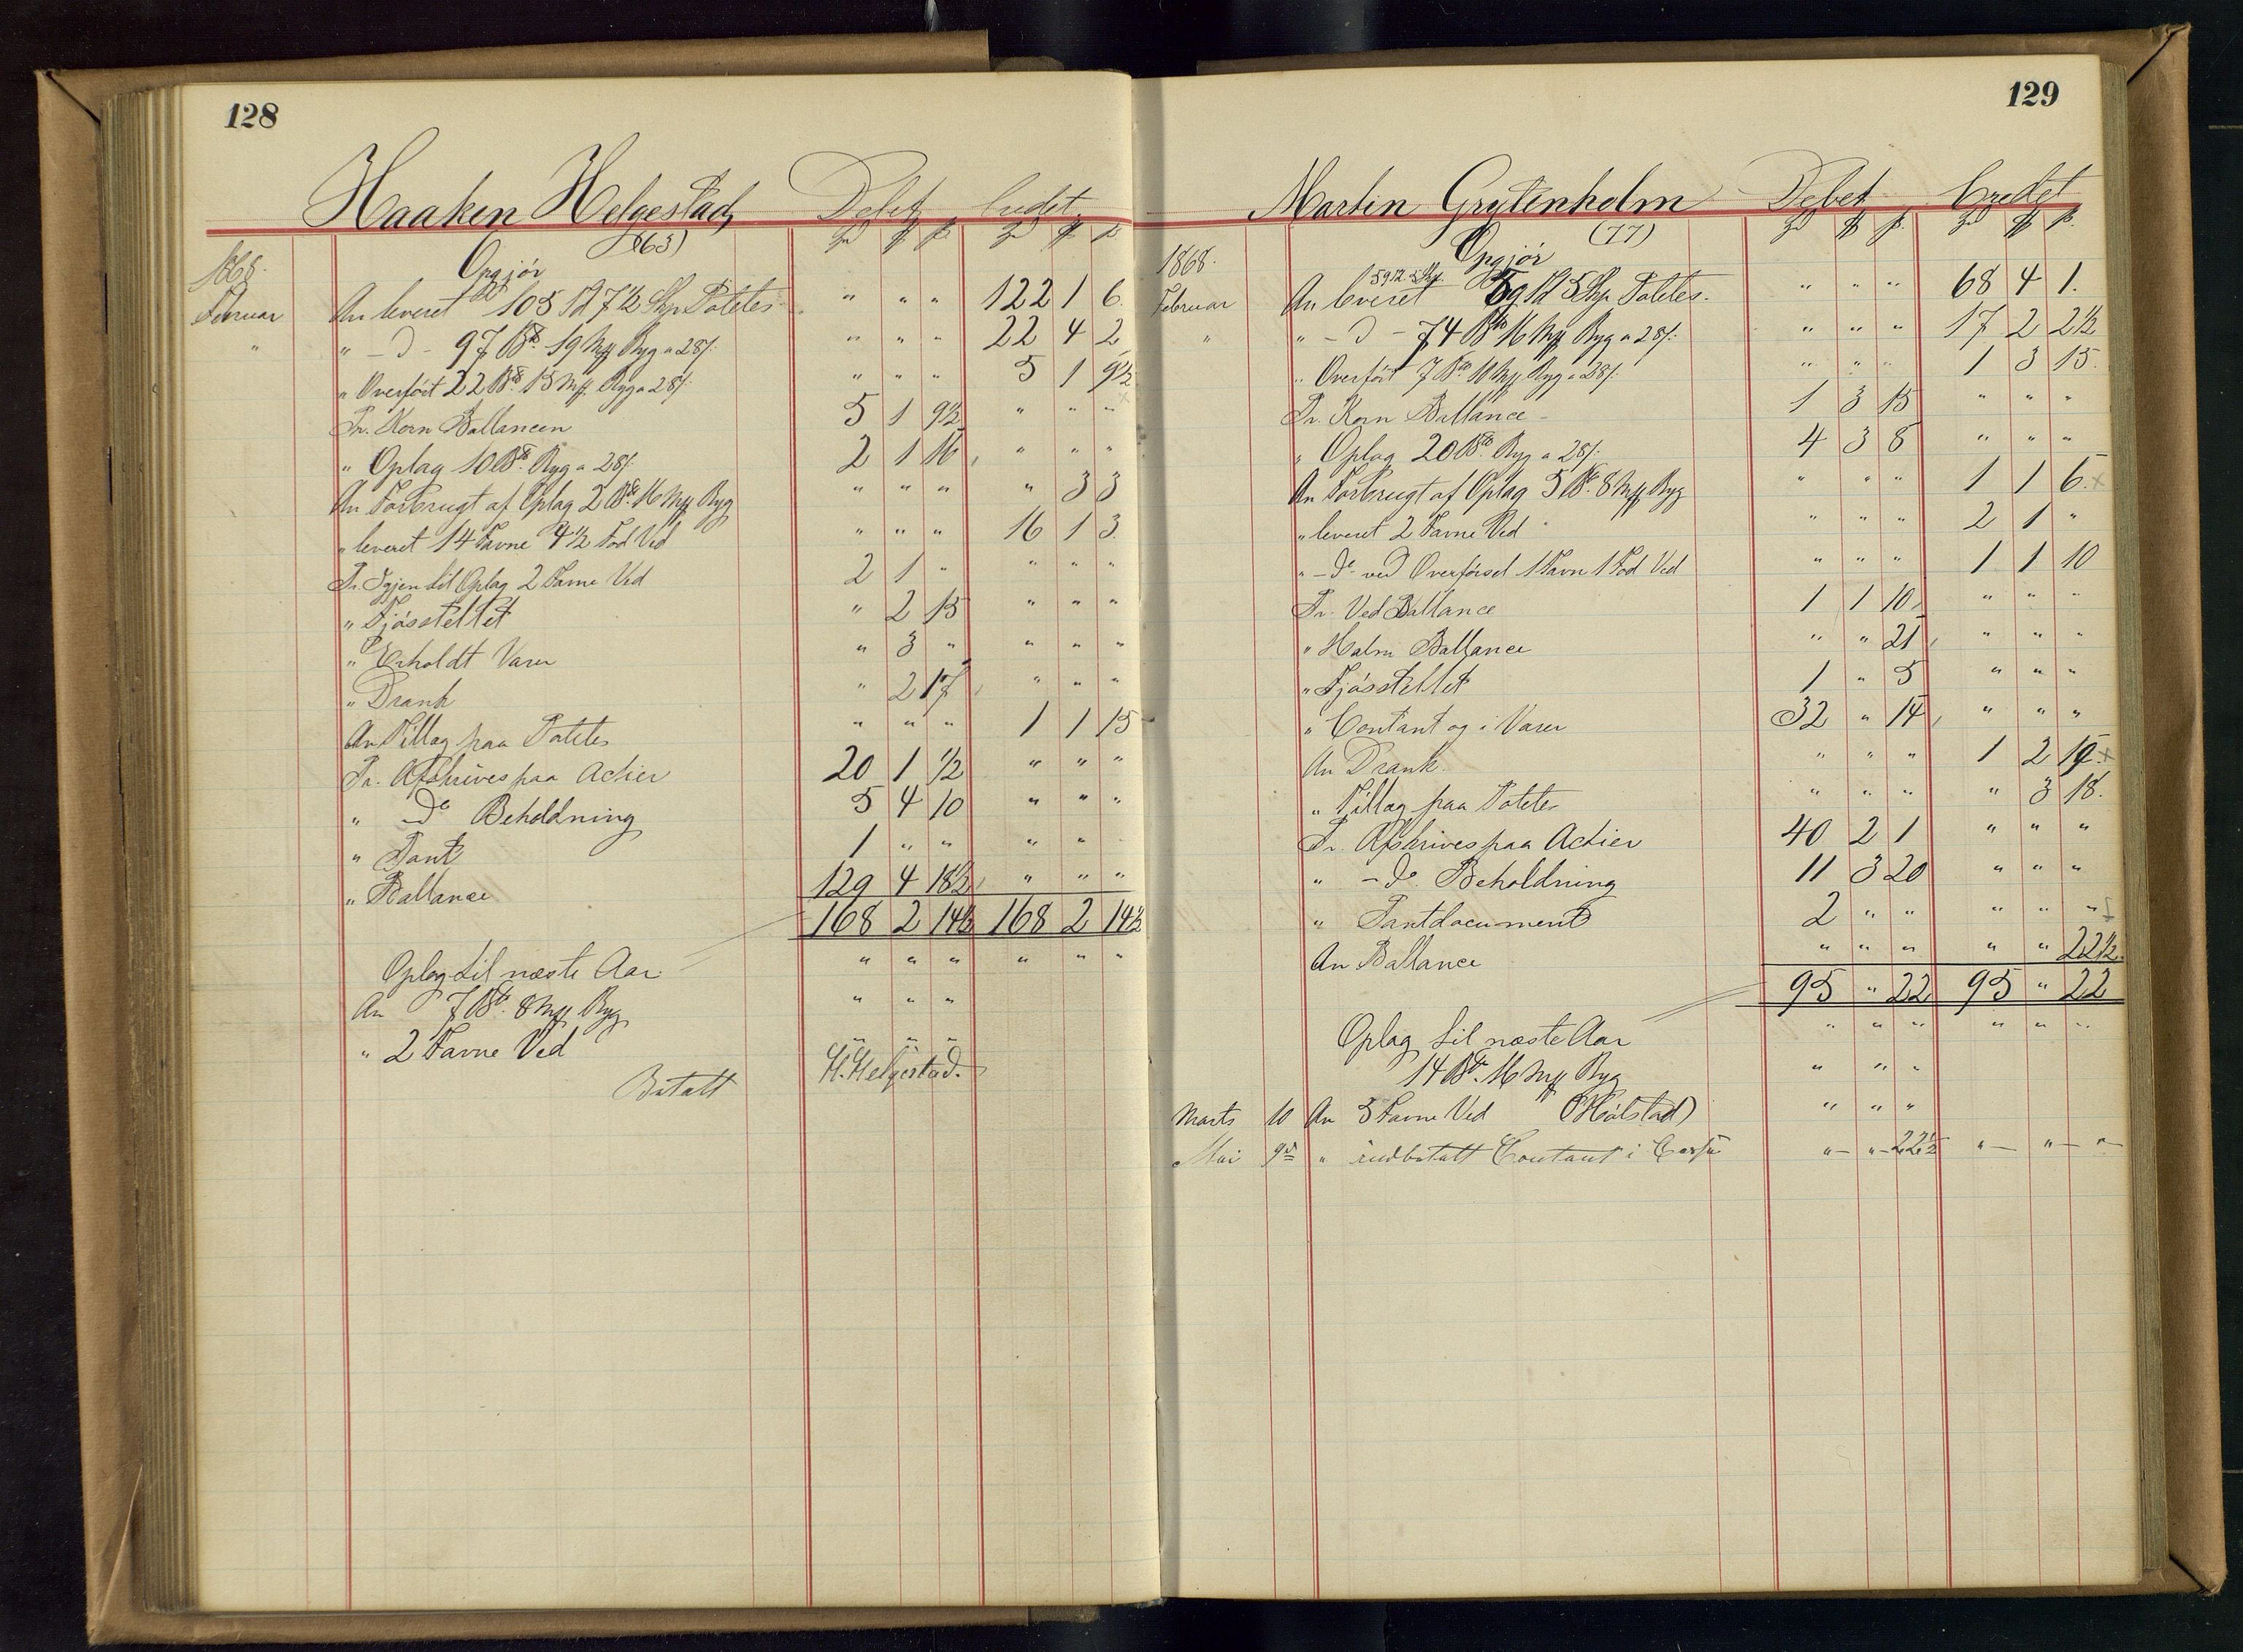 128
Haaken Helgestad Debet Credet
(63)
1868. Opgjör
Februar An leveret 105 Td 7½ Skp Poteter " " " 122 1 6
" " - d - 97 B 19 Mk Byg a 28/: " " " 22 4 2
" Overfört 22 B 15 Mk Byg a 28/: " " " 5 1 9½
Pr. Korn Ballancen 5 1 9½ " " "
" Oplag 10 B Byg a 28/: 2 1 16 " " "
An Forbrugt af Oplag 2 B 16 Mk Byg " " " " 3 3
" leveret 14 Favne 4½ Fod Ved " " " 16 1 3
Pr. Igjen til Oplag 2 Favne Ved 2 1 " " " "
" Fjösstellet " 2 15 " " "
" Erholdt Varer " 3 " " " "
" Drank " 2 17 " " "
An Tillag paa Poteter " " " 1 1 15
Pr. Afskrives paa Actier 20 1 ½ " " "
" do Beholdning 5 4 10 " " "
" Pant 1 " " " " "
" Ballance 129 4 18½ " " "
168 2 14½ 168 2 14½
Oplag til næste Aar " " " " " "
An 7 B 8 Mk Byg " " "
" 2 Favne Ved " " "
Betalt H. Helgestad.
129
Martin Grytenholm Debet Credet
(77)
1868. Opgjör
59 Td 5 Skp
Februar An leveret 59 Td 5 Skp Poteter. " " " 68 4 1.
" " - d - 74 B 16 Mk Byg a 28/: " " " 17 2 2½
" Overfört 7 B 16 Mk Byg a 28/: " " " 1 3 15.
Pr. Korn Ballance - 1 3 15 " " "
" Oplag 20 B Byg a 28/: 4 3 8 " " "
An Forbrugt af Oplag 5 B 8 Mk Byg " " " 1 1 6.
" leveret 2 Favne Ved " " " 2 1 "
" - do - ved Overförsel 1 Favn 1 Fod Ved " " " 1 1 10
Pr. Ved Ballance 1 1 10 " " "
" Halm Ballance " " 21 " " "
" Fjösstellet 1 " 5 " " "
" Contant og i Varer 32 " 14 " " "
An Drank " " " 1 2 19.
" Tillag paa Poteter " " " " 3 18.
Pr. Afskrives paa Actier 40 2 1 " " "
" - do. Beholdning 11 3 20 " " "
" Pantdocument 2 " " " " "
An Ballance " " " " " 22½
95 " 22 95 " 22
Oplag til næste Aar " " " " " "
14 B 16 Mk Byg " " "
Marts 10 An 3 Favne Ved (Hölstad) " " "
Mai 9de " indbetalt Contant i Cassa " - " - 22½ " - " - " -